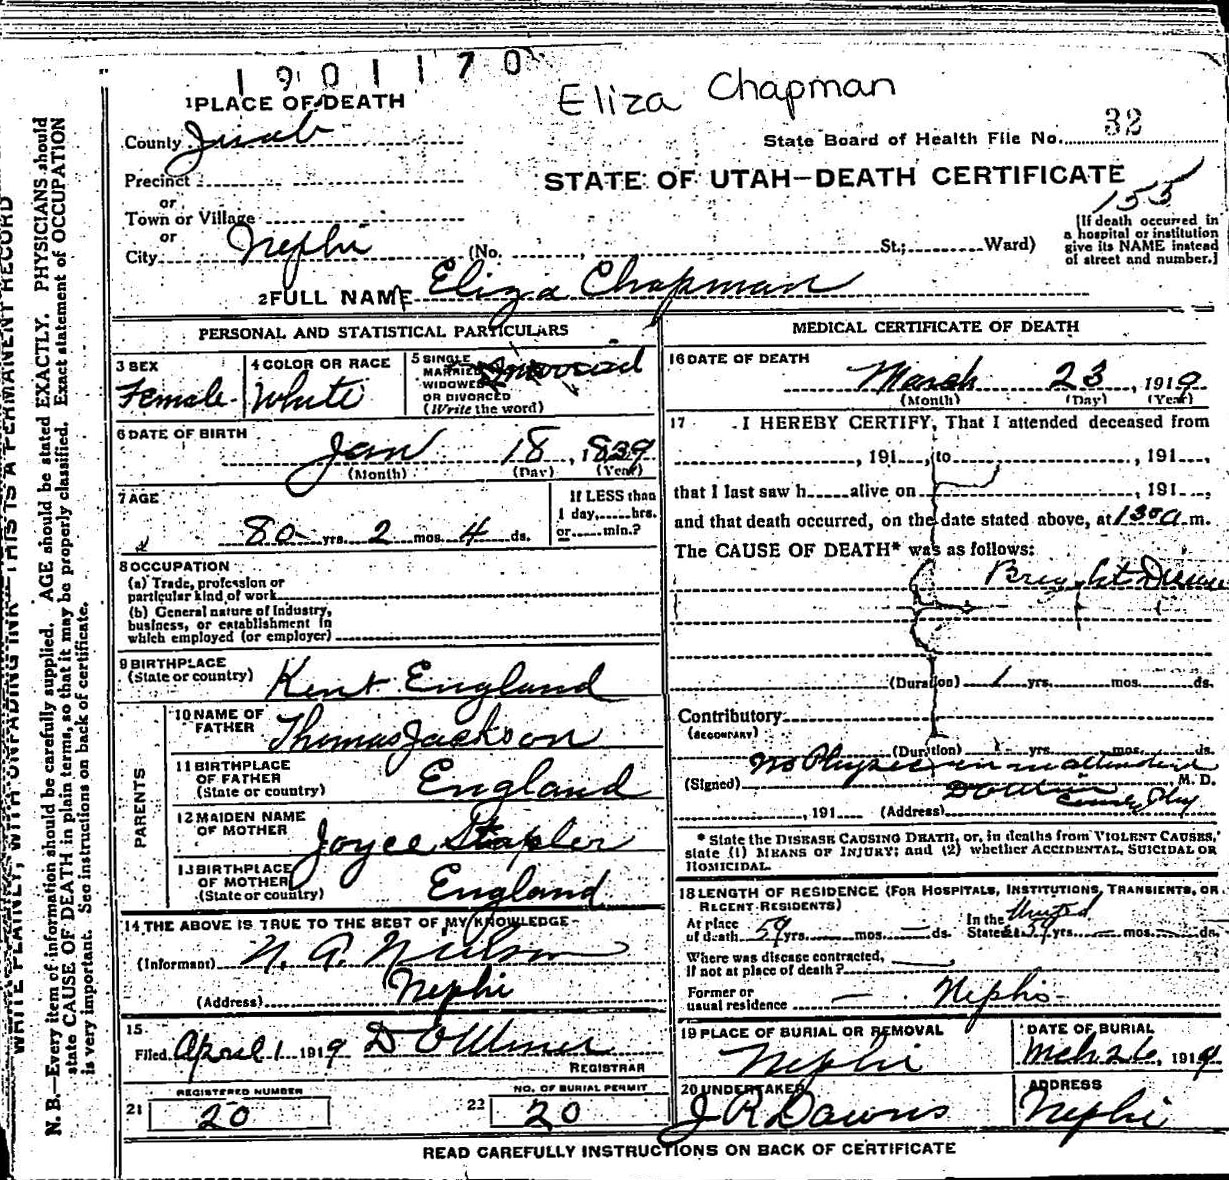 1901170
Eliza Chapman
1 PLACE OF DEATH
County Juab
State Board of Health File No. 32
Precinct
STATE OF UTAH—DEATH CERTIFICATE
or
155
Town or Village
or
City Nephi (No. , St; Ward)
[If death occurred in
a hospital or institution
give its NAME instead
of street and number.]
2 FULL NAME Eliza Chapman
PERSONAL AND STATISTICAL PARTICULARS
3 SEX
Female
4 COLOR OR RACE
White
5 SINGLE
MARRIED
WIDOWED
OR DIVORCED
(Write the word)
6 DATE OF BIRTH
Jan 18, 1839
(Month) (Day) (Year)
7 AGE
80 yrs. 2 mos. 4 ds.
If LESS than
1 day, hrs.
or min.?
8 OCCUPATION
(a) Trade, profession or
particular kind of work
(b) General nature of Industry,
business, or establishment in
which employed (or employer)
9 BIRTHPLACE
(State or country) Kent England
PARENTS
10 NAME OF
FATHER Thomas Jackson
11 BIRTHPLACE
OF FATHER
(State or country) England
12 MAIDEN NAME
OF MOTHER Joyce Stapler
13 BIRTHPLACE
OF MOTHER
(State or country) England
14 THE ABOVE IS TRUE TO THE BEST OF MY KNOWLEDGE
(Informant) N. A. Nielson
(Address) Nephi
15
Filed April 1 1919
REGISTRAR
REGISTERED NUMBER
21 20
NO. OF BURIAL PERMIT
22 20
MEDICAL CERTIFICATE OF DEATH
16 DATE OF DEATH
March 23, 1919
(Month) (Day) (Year)
17 I HEREBY CERTIFY, That I attended deceased from
, 191 , to , 191 ,
that I last saw h alive on , 191 ,
and that death occurred, on the date stated above, at 130 a m.
The CAUSE OF DEATH* was as follows:
Bright Disease
(Duration) 1 yrs. mos. ds.
Contributory
(SECONDARY)
(Duration) yrs. mos. ds.
No Physician in attendance
(Signed) M. D.
, 191 (Address) County Phy
* State the DISEASE CAUSING DEATH, or, in deaths from VIOLENT CAUSES,
state (1) MEANS OF INJURY; and (2) whether ACCIDENTAL, SUICIDAL OR
HOMICIDAL.
18 LENGTH OF RESIDENCE (FOR HOSPITALS, INSTITUTIONS, TRANSIENTS, OR
RECENT RESIDENTS)
At place
of death 59 yrs. mos. — ds.
In the United
States 59 yrs. — mos. — ds.
Where was disease contracted,
if not at place of death?
Former or
usual residence — Nephi
19 PLACE OF BURIAL OR REMOVAL
Nephi
DATE OF BURIAL
Mch 26, 1919
20 UNDERTAKER
J R Dawns
ADDRESS
Nephi
READ CAREFULLY INSTRUCTIONS ON BACK OF CERTIFICATE
WRITE PLAINLY, WITH UNFADING INK—THIS IS A PERMANENT RECORD
N. B.—Every item of information should be carefully supplied. AGE should be stated EXACTLY. PHYSICIANS should
state CAUSE OF DEATH in plain terms, so that it may be properly classified. Exact statement of OCCUPATION
is very important. See instructions on back of certificate.